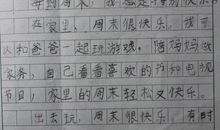 每到周末，我总是特别快乐。
在家里，周末很快乐。我可
以和爸爸一起玩游戏，陪妈妈做
家务，自己看看喜欢的书和电视
节目，家里的周末轻松又快乐。
出去玩，周末很快乐。有时